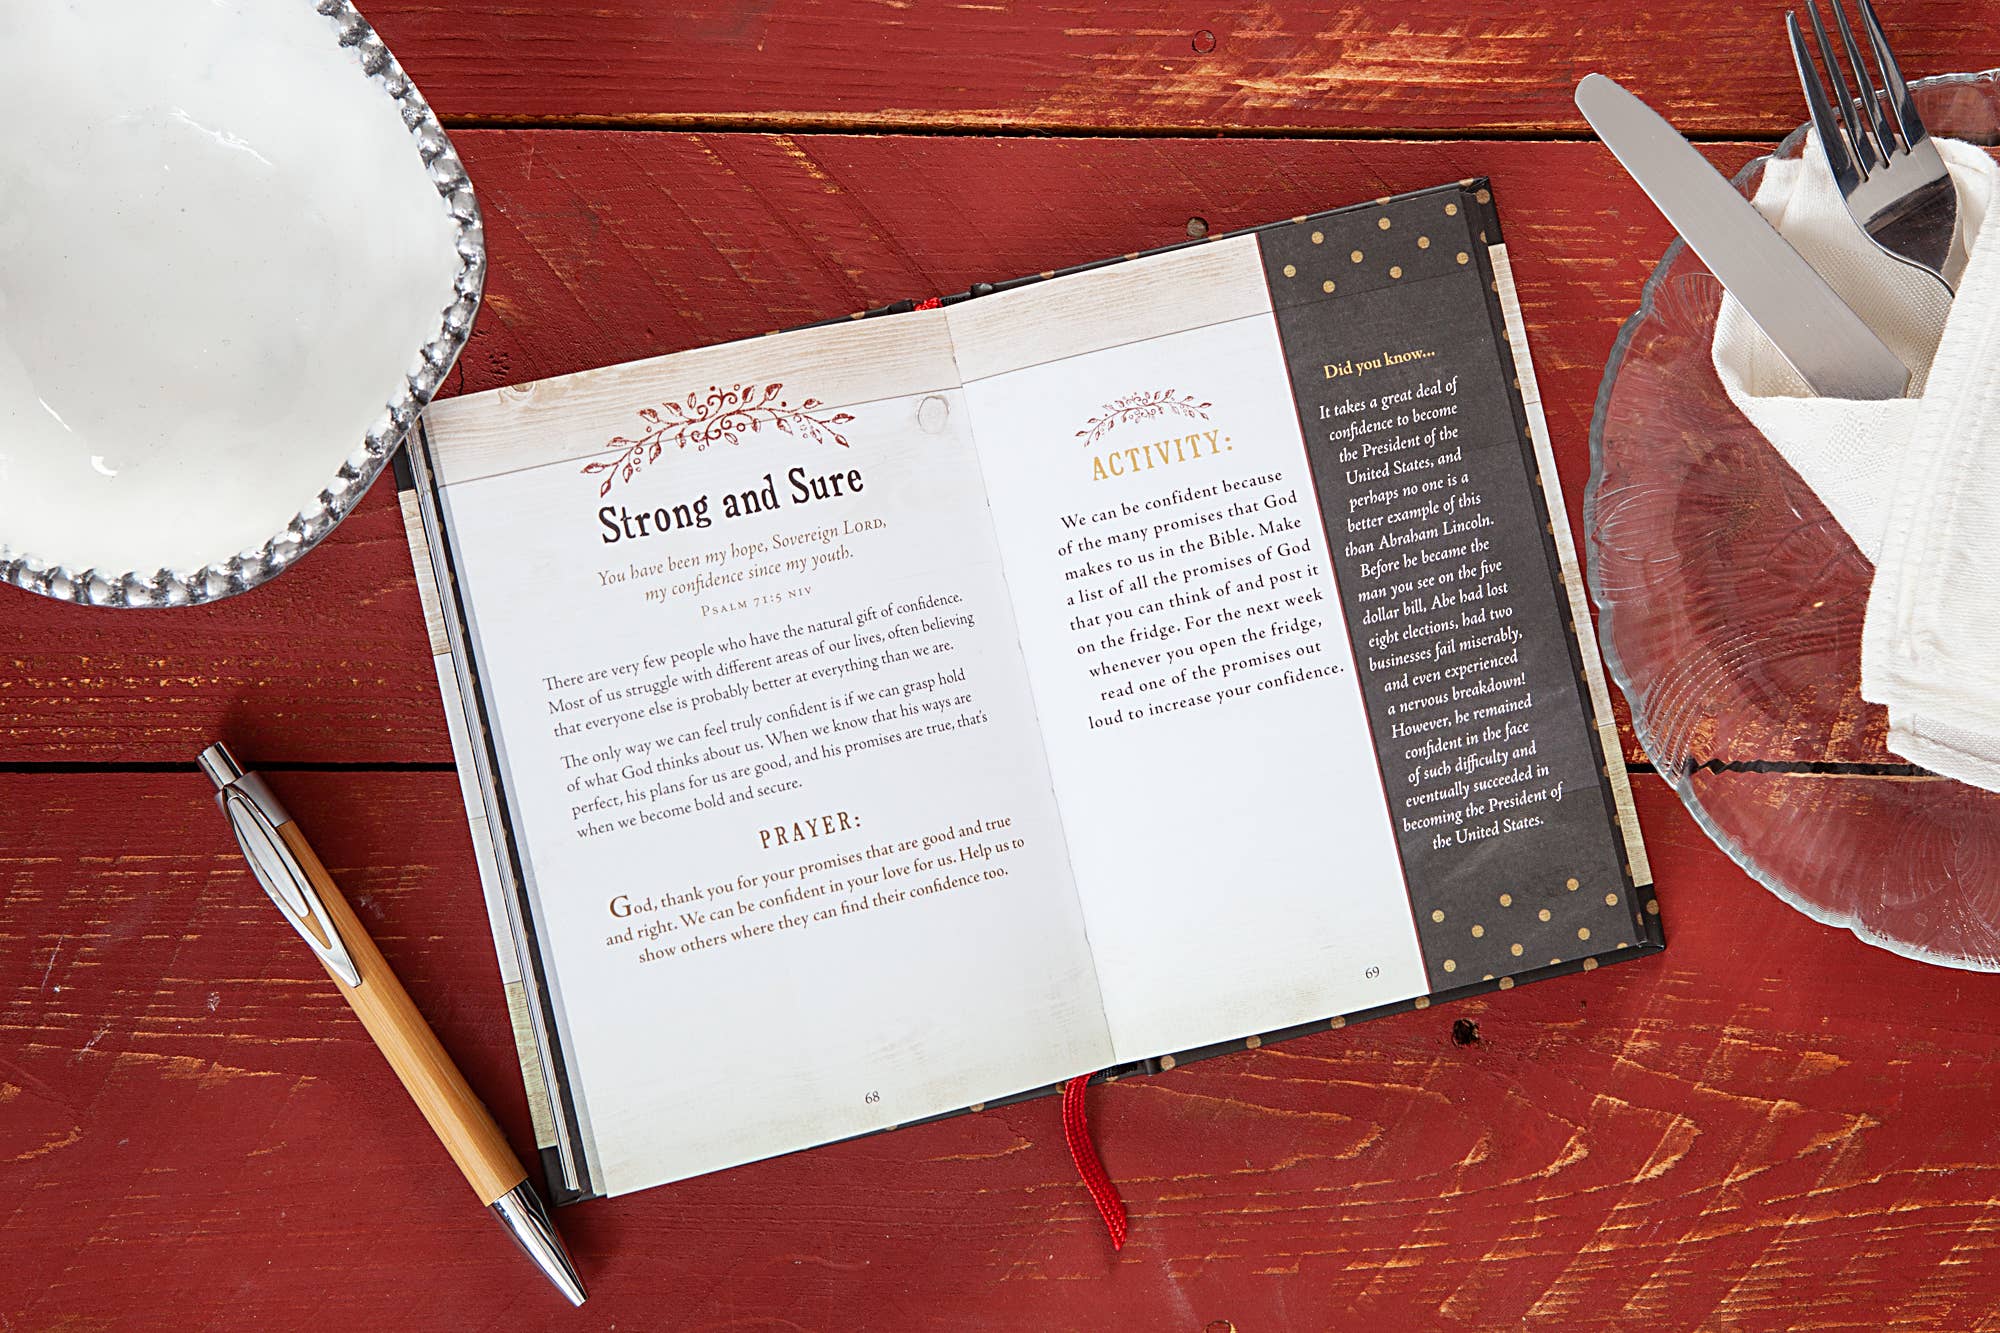 Strong and Sure
You have been my hope, Sovereign LORD,
my confidence since my youth.
PSALM 71:5 NIV
There are very few people who have the natural gift of confidence.
Most of us struggle with different areas of our lives, often believing
that everyone else is probably better at everything than we are.
The only way we can feel truly confident is if we can grasp hold
of what God thinks about us. When we know that his ways are
perfect, his plans for us are good, and his promises are true, that's
when we become bold and secure.
PRAYER:
God, thank you for your promises that are good and true
and right. We can be confident in your love for us. Help us to
show others where they can find their confidence too.
68
ACTIVITY:
We can be confident because
of the many promises that God
makes to us in the Bible. Make
a list of all the promises of God
that you can think of and post it
on the fridge. For the next week
whenever you open the fridge,
read one of the promises out
loud to increase your confidence.
69
Did you know...
It takes a great deal of
confidence to become
the President of the
United States, and
perhaps no one is a
better example of this
than Abraham Lincoln.
Before he became the
man you see on the five
dollar bill, Abe had lost
eight elections, had two
businesses fail miserably,
and even experienced
a nervous breakdown!
However, he remained
confident in the face
of such difficulty and
eventually succeeded in
becoming the President of
the United States.